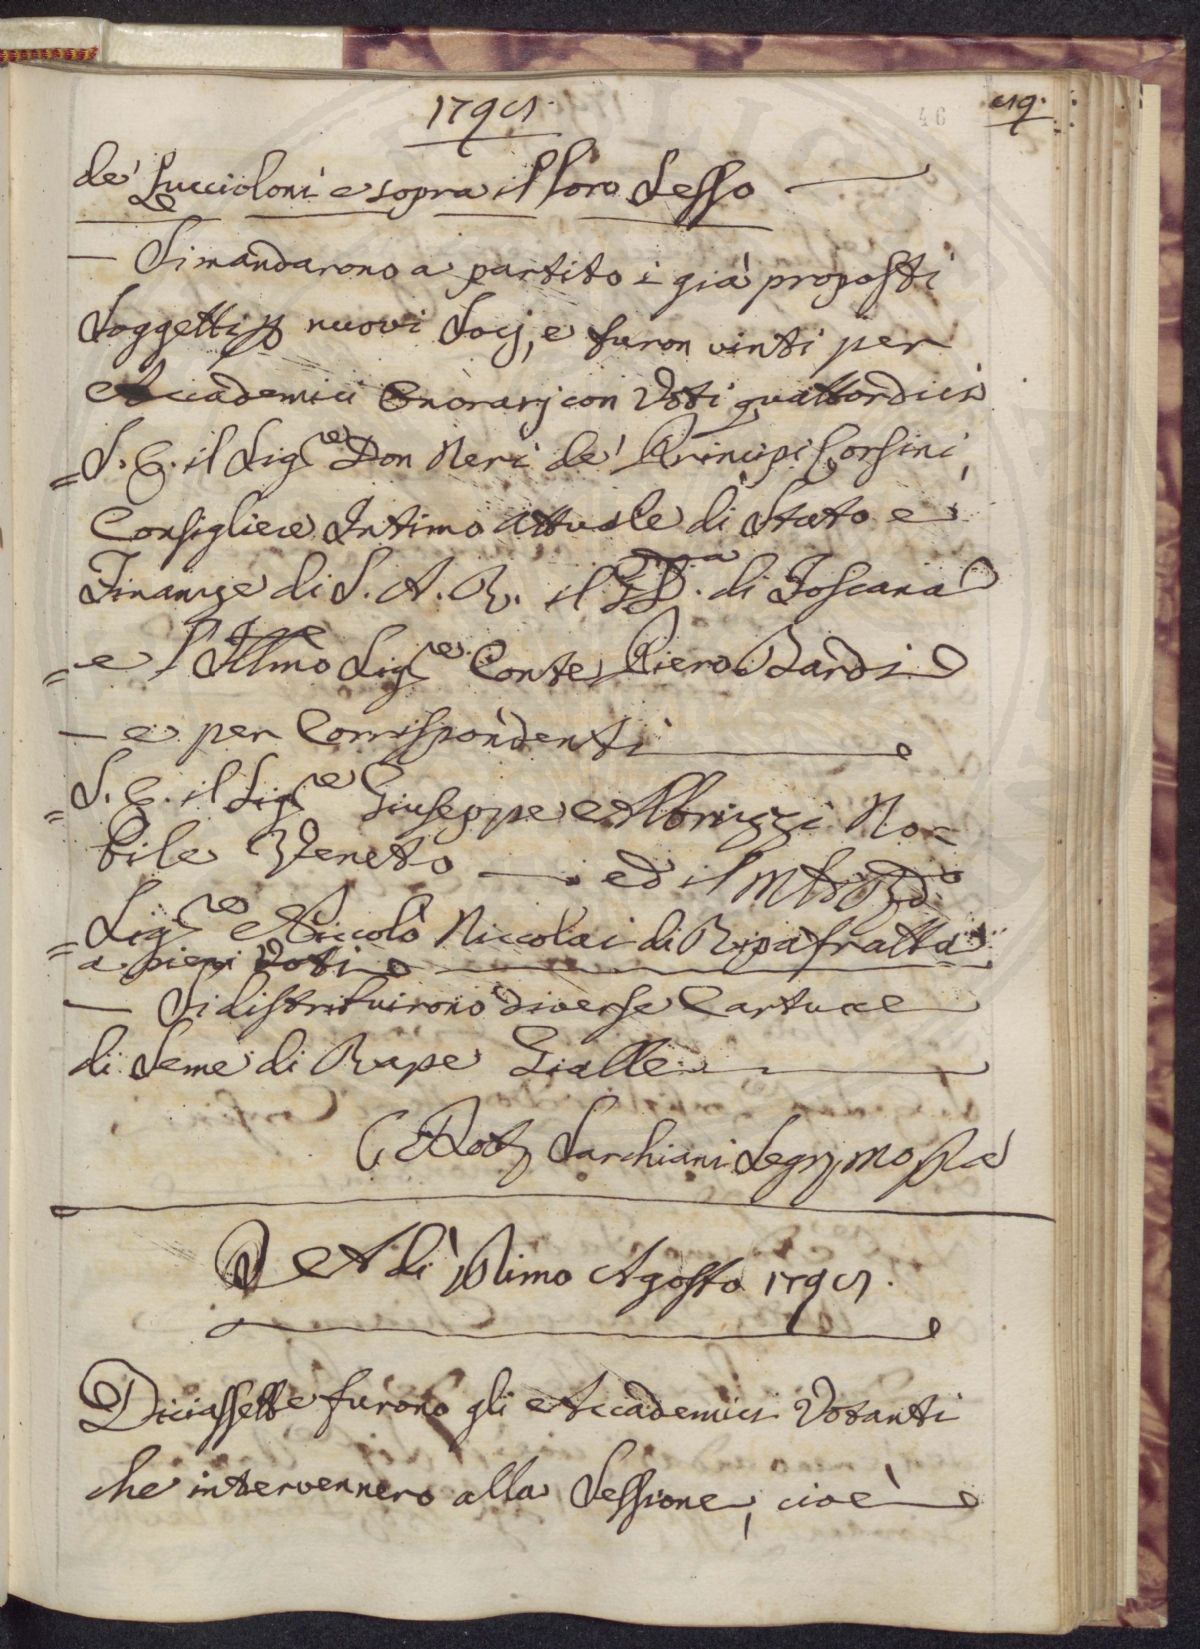 1795.
46
49.
de' Luccioloni e sopra il loro Sesso
— Si mandarono a partito i già proposti
Soggetti p nuovi Socj, e furon vinti per
Accademici Onorarj con Voti quattordici
= S. E. il Sig.re Don Neri de' Principi Corsini,
Consigliere Intimo Attuale di Stato e
Finanze di S. A. R. il GD.a di Toscana
= e l'Illmo Sig.re Conte Piero Bardi
— e per Corrispondenti
= S. E. il Sig.re Giuseppe Albrizzi No=
bile Veneto — ed il
= Sig.re Niccolò Niccolai di Ripafratta
a pieni Voti
— Si distribuirono diverse Cartucce
di Seme di Rape Gialle
Sarchiani Seg.
A dì Primo Agosto 1795.
Diciassette furono gli Accademici Votanti
che intervennero alla Sessione, cioè